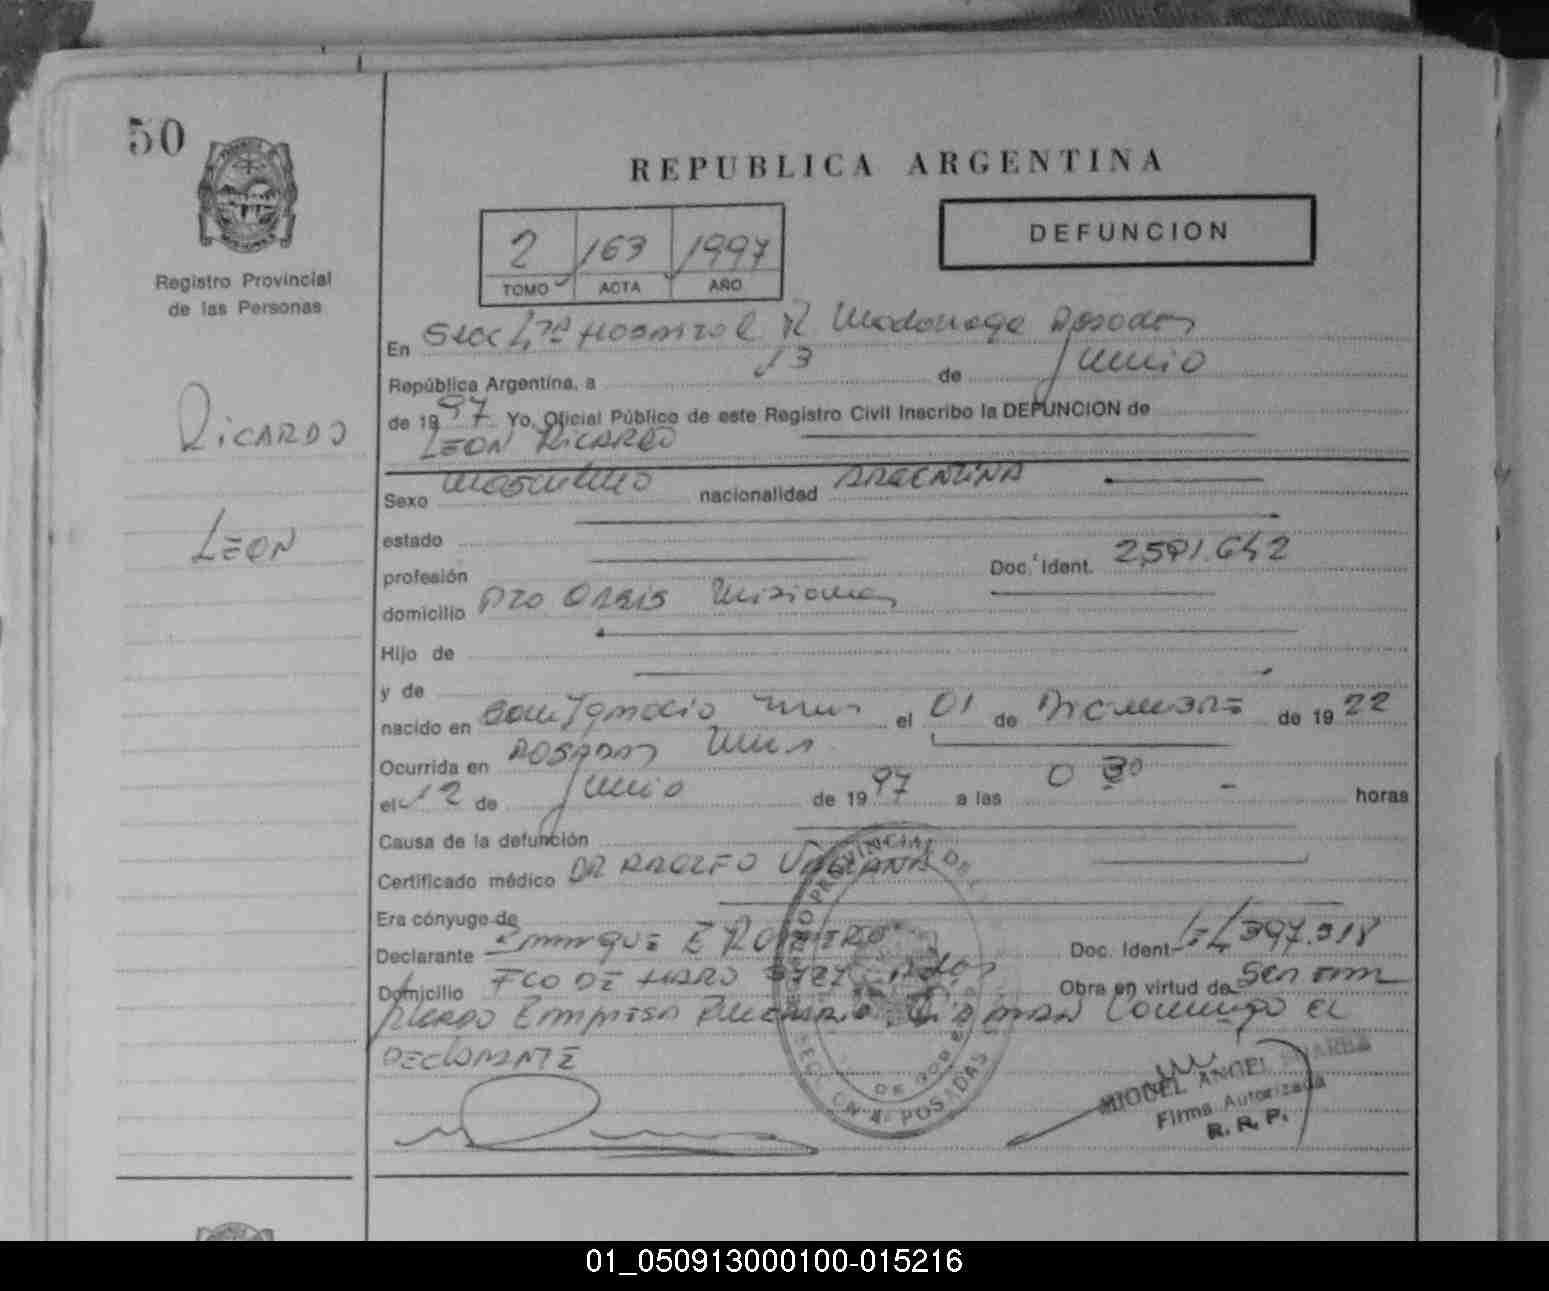 50
REPUBLICA ARGENTINA
2 163 1997
TOMO ACTA AÑO
DEFUNCION
Registro Provincial
de las Personas
En Secc 4ta Hospital R Madariaga Posadas
República Argentina, a 13 de Junio
de 1997 Yo, Oficial Público de este Registro Civil Inscribo la DEFUNCION de
LEON RICARDO
RICARDO
LEON
Sexo masculino nacionalidad ARGENTINA
estado
profesión Doc. Ident. 2.591.642
domicilio Misiones
Hijo de
y de
nacido en San Ignacio Mnes el 01 de DICIEMBRE de 1922
Ocurrida en POSADAS Mnes
el 12 de Junio de 1997 a las 0 30 horas
Causa de la defunción
Certificado médico DR
Era cónyuge de
Declarante ENRIQUE E ROMERO Doc. Ident.
Domicilio FCO DE HARO Pdas Obra en virtud de ser
EMPRESA conmigo EL
DECLARANTE
REGISTRO PROVINCIAL DE
SECCION 4a POSADAS
MIGUEL ANGEL
Firma Autorizada
R. R. P.
01_050913000100-015216